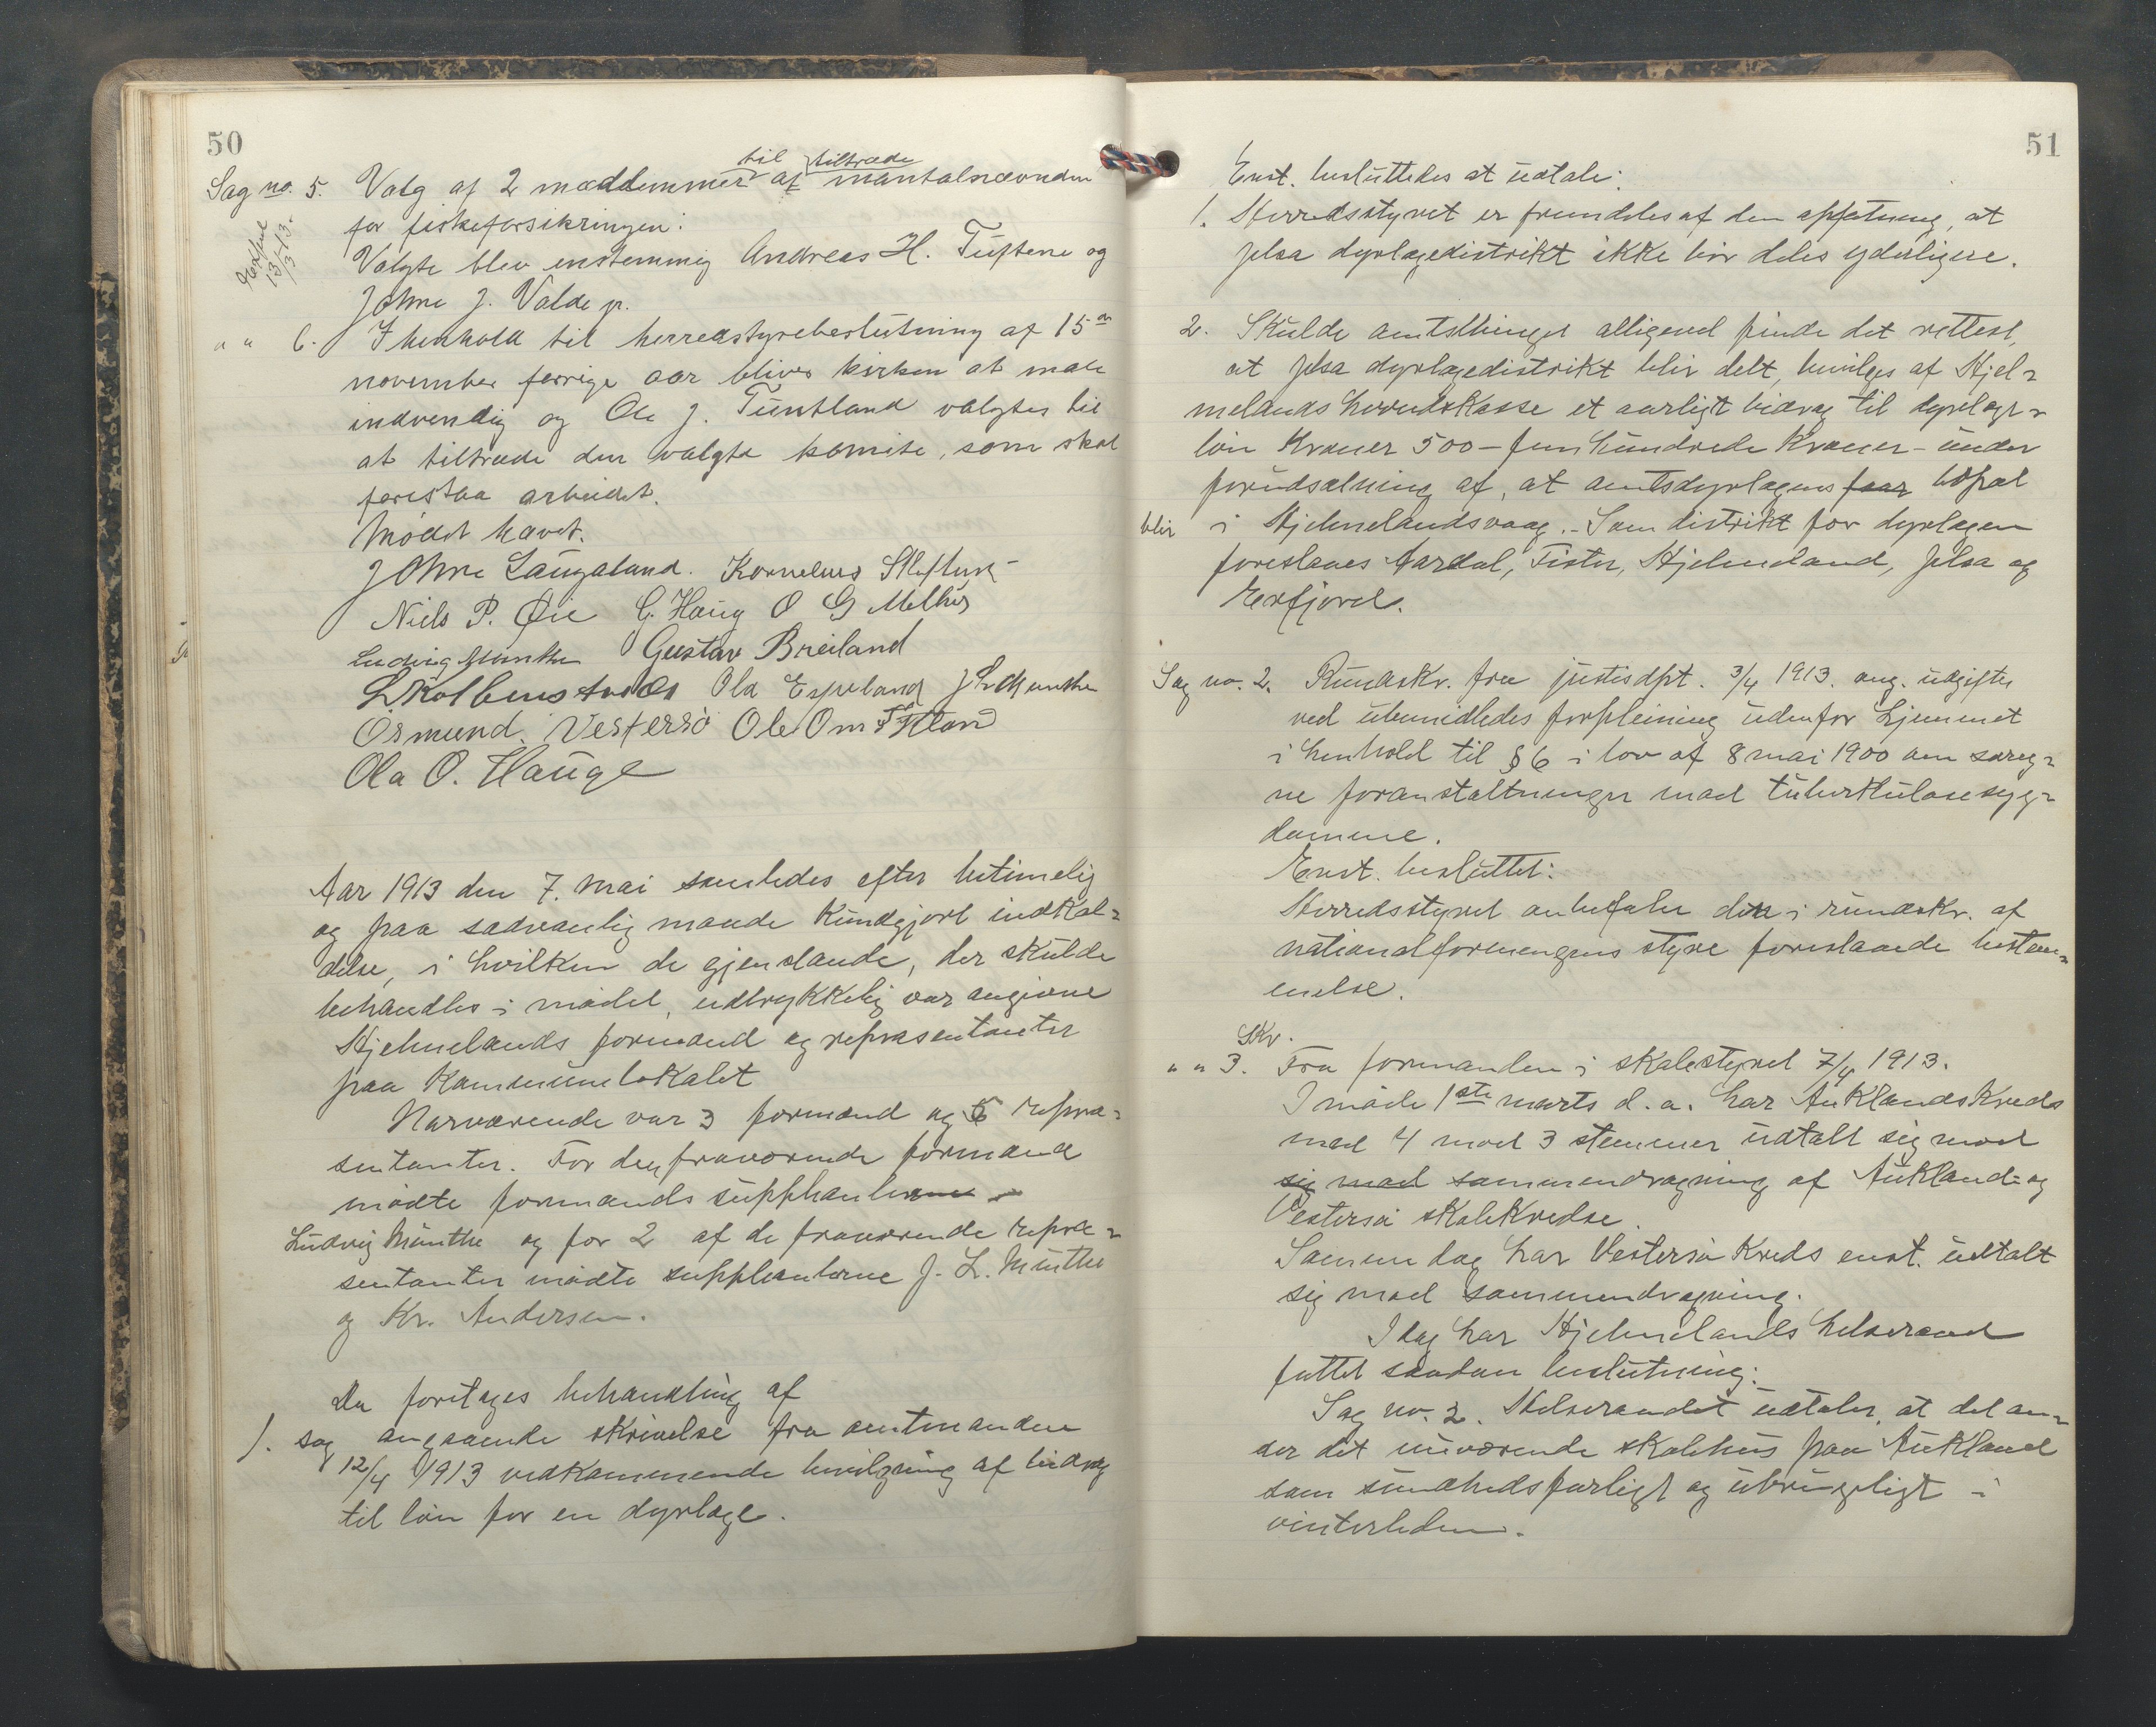 50
Sag no. 5. Valg af 2 meddemmer til at tiltræde mantalsnævnden
for fiskeforsikringen:
Expd. 13/3-13.
Valgte blev enstemmig Andreas H. Tuftene og
Johne J. Valde jr.
" " 6. I henhold til herredstyrebeslutning af 15de
november forrige aar blives kirken at male
indvendig og Ole J. Tuntland valgtes til
at tiltræde den valgte komite, som skal
forestaa arbeidet.
Mødet hævet.
Johne Laugaland. Kornelius Skeftun
Niels P. Øie G. Haug O G Melhus
Ludvig Munthe Gustav Breiland
L Kolbenstvedt Ola Espeland J L Munthe
Osmund Vestersø Ole Omt
Ola O. Hauge
Aar 1913 den 7. mai samledes efter betimelig
og paa sædvanlig maade kundgjort indkal=
delse, i hvilken de gjenstande, der skulde
behandles i mødet, udtrykkelig var angivne
Hjelmelands formænd og repræsentanter
paa kommunelokalet
Nærværende var 3 formænd og 5 repræ=
sentanter. For den fraværende formand
mødte formands supplianten
Ludvig Munthe og for 2 af de fraværende repræ=
sentanter mødte supplianterne J. L. Munthe
og Kr. Andersen.
Da foretages behandling af
1. sag angaaende skrivelse fra amtmanden
12/4 1913 vedkommende bevilgning af bidrag
til løn for en dyrlæge.
51
Enst. besluttedes at udtale:
1. Herredsstyret er fremdeles af den opfatning, at
Jelsa dyrlægedistrikt ikke bør deles yderligere.
2. Skulde amtsthinget alligevel finde det rettest,
at Jelsa dyrlægedistrikt blir delt, bevilges af Hjel=
melands herredskasse et aarligt bidrag til dyrlæge=
løn Kroner 500 – fem hundrede Kroner – under
forudsætning af, at amtsdyrlægens faar bopæl
blir i Hjelmelandsvaag. – Som distrikt for dyrlægen
foreslaaes Aardal, Fister, Hjelmeland, Jelsa og
Erfjord.
Sag no. 2. Rundskr. fra justisdpt. 3/4 1913. ang. udgifter
ved ubemidledes forpleining udenfor hjemmet
i henhold til § 6 i lov af 8 mai 1900 om særeg=
ne foranstaltninger mod tuberkuløse syg=
domme.
Enst. besluttet:
Herredsstyret anbefaler den i rundskr. af
nationalforeningens styre foreslaaede bestem=
melse.
Skr.
" " 3. Fra formanden i skolestyret 7/4 1913.
I møde 1ste marts d. a. har Auklands Kreds
med 4 mod 3 stemmer udtalt sig mod
sig mod sammendragning af Aukland= og
Vestersø skolekredse.
Samme dag har Vestersø Kreds enst. udtalt
sig mod sammendragning.
I dag har Hjelmelands helseraad
fattet saadan beslutning:
Sag no. 2. Helseraadet udtaler, at det an=
ser det nuværende skolehus paa Aukland
som sundhedsfarligt og ubrugeligt i
vintertiden.